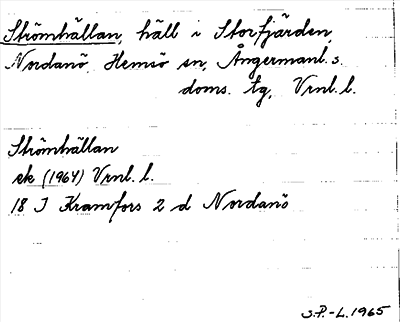 Strömhällan, häll i Storfjärden,
Nordanö, Hemsö sn, Ångermanl. s.
doms. tg, Vrnl. l.
Strömhällan
ek (1964) Vrnl. l.
18 I Kramfors 2 d Nordanö
S.P.-L. 1965